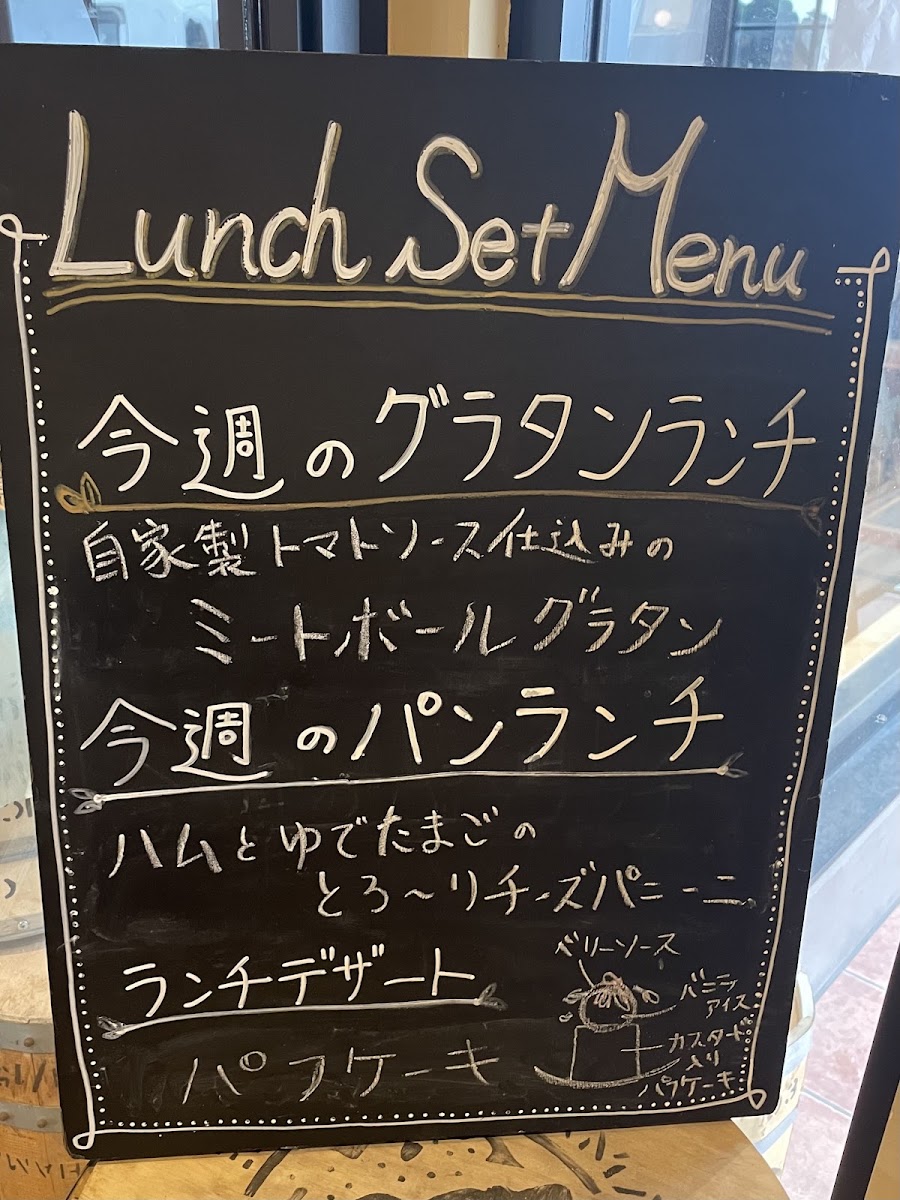 Lunch Set Menu
今週のグラタンランチ
自家製トマトソース仕込みの
ミートボールグラタン
今週のパンランチ
ハムとゆでたまごの
とろ～りチーズパニーニ
ランチデザート
パフケーキ
ベリーソース
バニラ
アイス
カスタード
入り
パフケーキ